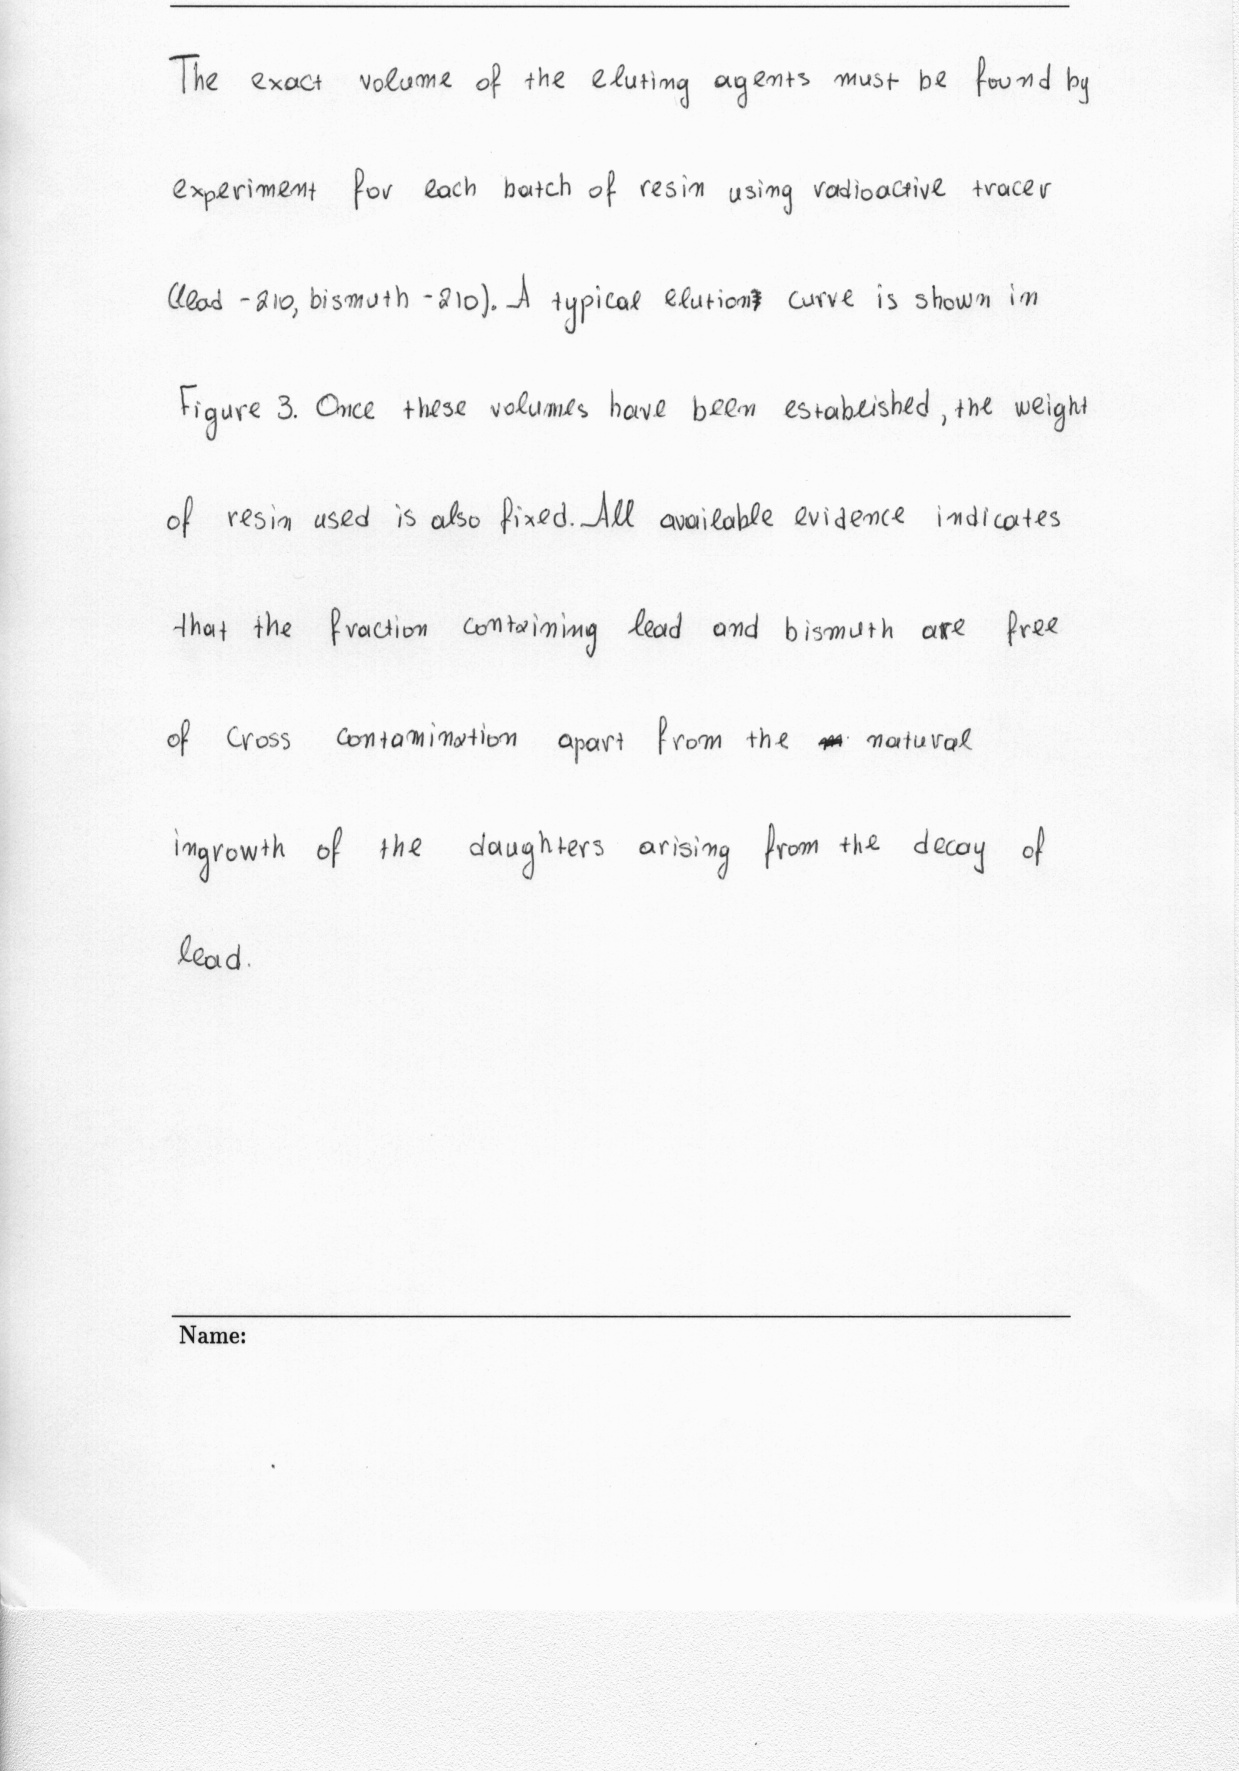 The exact volume of the eluting agents must be found by
experiment for each batch of resin using radioactive tracer
(lead -210, bismuth -210). A typical elution curve is shown in
Figure 3. Once these volumes have been established, the weight
of resin used is also fixed. All available evidence indicates
that the fraction containing lead and bismuth are free
of cross contamination apart from the natural
ingrowth of the daughters arising from the decay of
lead.
Name: